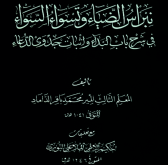 نبراس الضياء وتسواء السواء
في شرح باب البداء وإثبات جدوى الدعاء
تأليف
المعلم الثالث المير محمد باقر الداماد
المتوفى ١٠٤١ هـ
مع تعليقات